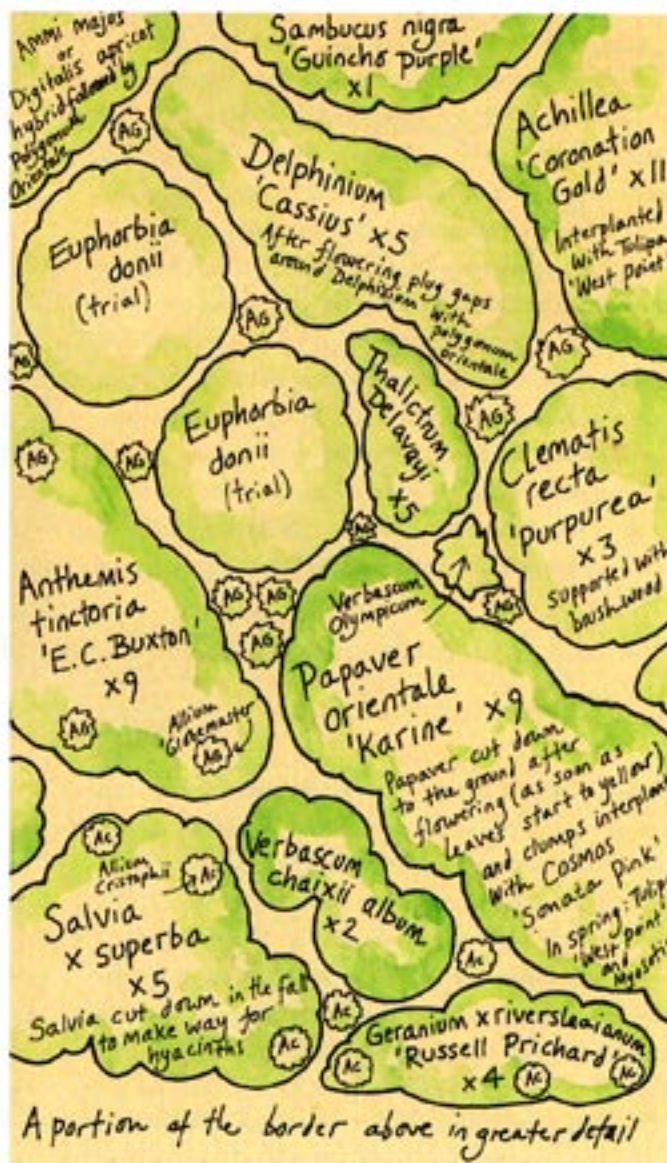 Ammi majos
or
Digitalis apricot
hybrid followed by
Polygonum
Orientale
Sambucus nigra
'Guincho Purple'
x1
Achillea
'Coronation
Gold' x11
Interplanted
with Tulipa
'West point'
AG
Delphinium
'Cassius' x5
After flowering plug gaps
around Delphinium with
polygonum
orientale
Euphorbia
donii
(trial)
AG
AG
AG
Euphorbia
donii
(trial)
Thalictrum
Delavayi
x5
AG
Clematis
recta
'purpurea'
x3
Supported with
brushwood
AG
AG
AG
Verbascum
Olympicum
AG
Anthemis
tinctoria
'E.C. Buxton'
x9
AG
AG
AG
AG
Allium
'Globemaster'
AG
Papaver
orientale
'Karine' x9
Papaver cut down
to the ground after
flowering (as soon as
leaves start to yellow)
and clumps interplant
with Cosmos
'Sonata Pink'
In spring: Tulipa
'West point'
and
Myosotis
Ac
Allium
Cristophii
Ac
Salvia
x superba
x5
Salvia cut down in the fall
to make way for
hyacinths
Ac
Verbascum
chaixii album
x2
Ac
Ac
Geranium x riversleaianum
'Russell Prichard'
x4
Ac
Ac
Ac
A portion of the border above in greater detail